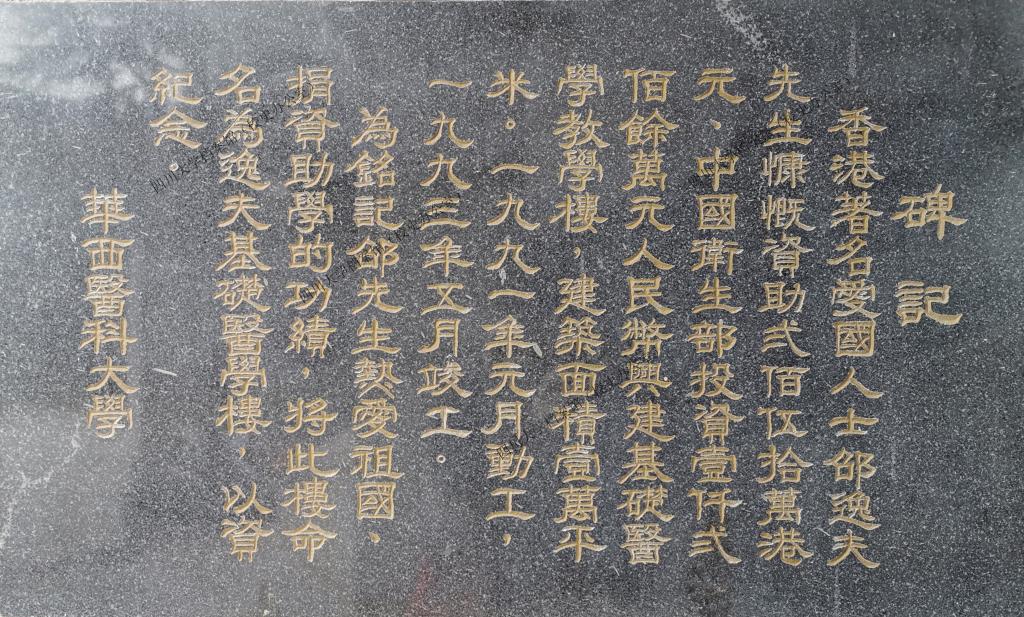 碑記
香港著名愛國人士邵逸夫
先生慷慨資助弍佰伍拾萬港
元、中國衛生部投資壹仟弍
佰餘萬元人民幣興建基礎醫
學教學樓，建築面積壹萬平
米。一九九一年元月動工，
一九九三年五月竣工。
為銘記邵先生熱愛祖國、
捐資助學的功績，將此樓命
名為逸夫基礎醫學樓，以資
紀念。
華西醫科大學